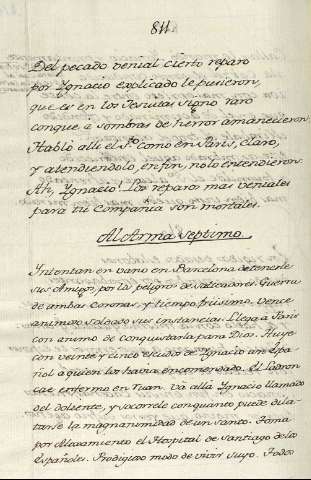 811
Del pecado venial cierto reparo
por Ygnacio explicado le pusieron,
que es en los Jesuitas signo raro
conque a sombras de herror amanecieron.
Habló alli el Sto. como en Paris, claro,
y atendiendolo, en fin, no lo entendieron.
Ah, Ygnacio! Los reparos mas veniales
para tu Compañia son mortales.
Al Arma septimo
Yntentan en vano en Barcelona detenerle
sus Amigos, por los peligros de salteadores. Guerra
de ambas Coronas, y tiempo friisimo. Vence
animoso soldado sus instancias. Llega a Paris
con animo de conquistarla para Dios. Huye
con veinte y cinco escudos de Ygnacio un Espa-
ñol a quien los havia encomendado. El Ladron
cae enfermo en Ruan. Vá allá Ygnacio llamado
del doliente, y socorrele con quanto puede dila-
tarse la magnanimidad de un santo. Toma
por Alojamiento el Hospital de Santiago de los
Españoles. Prodigioso modo de vivir suyo. Todos